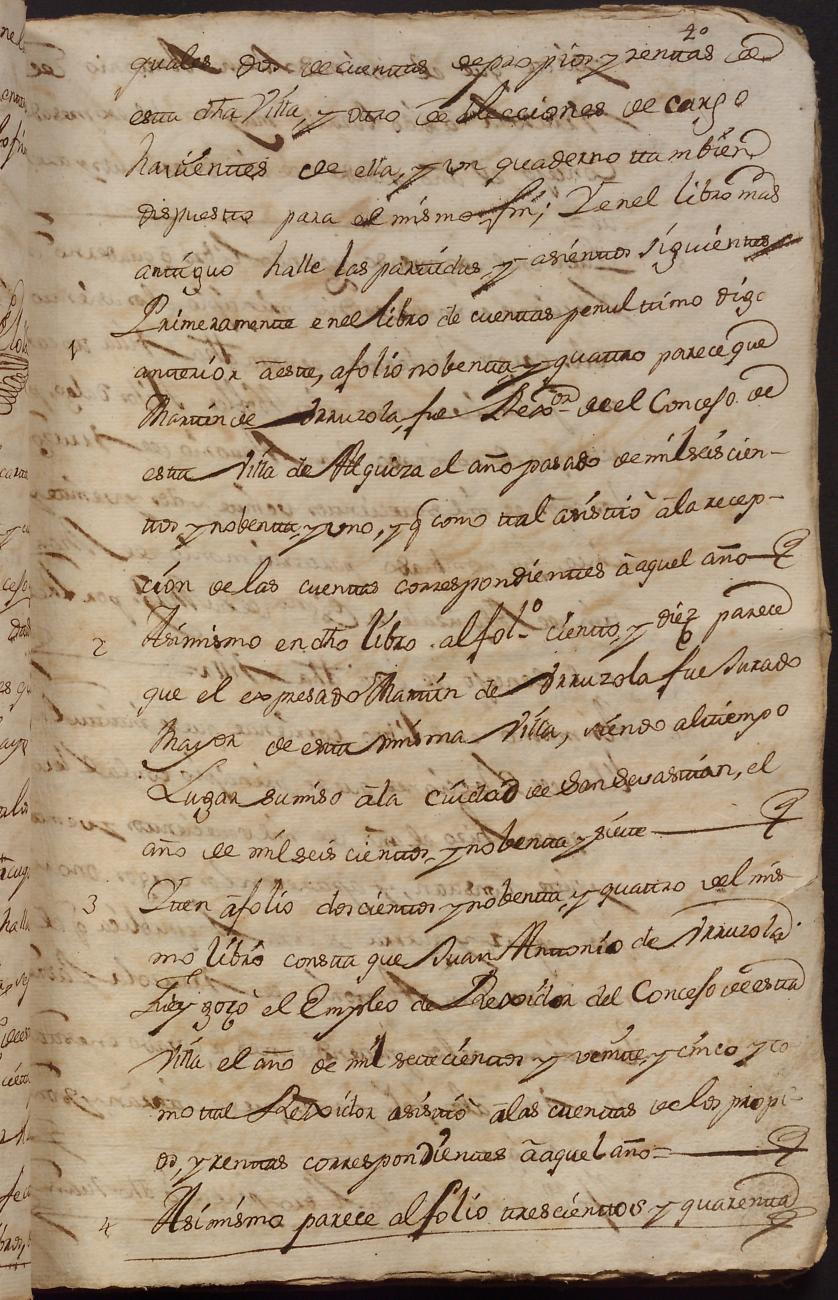 4º
quales dos de cuentas de propios y rentas de
esta dha Villa, y otro de elecciones de cargo
havientes de ella, y un quaderno tambien
dispuesto para el mismo fin; Y en el libro mas
antiguo halle las partidas, y asientos siguientes
1 Primeramente en el libro de cuentas penultimo digo
anterior à este, a folio nobenta y quattro parece que
Martin de Yrruzola fue Rexor de el Concejo de
esta Villa de Alquiza el año pasado de mil seiscien-
ttos y nobenta, y uno, y q como tal asistiò à la recep-
cion de las cuentas correspondientes à aquel año
2 Asimismo en dho libro al folº ciento, y diez parece
que el expresado Martin de Yrruzola fue Jurado
Mayor de esta misma Villa, siendo al tiempo
Lugar sumiso à la ciudad de San Sevastian, el
año de mil seis cientos y nobenta y siete
3 Yten à folio doscientos y nobenta, y quattro del mis-
mo libro consta que Juan Antonio de Yrruzola
gozò el Empleo de Rexidor del Concejo de esta
Villa el año de mil setecientos y veinte, y cinco y co
mo tal Rexidor asistiò à las cuentas de los propi-
os, y rentas correspondientes à aquel año=
4 Asimismo parece al folio trescientos y quarenta